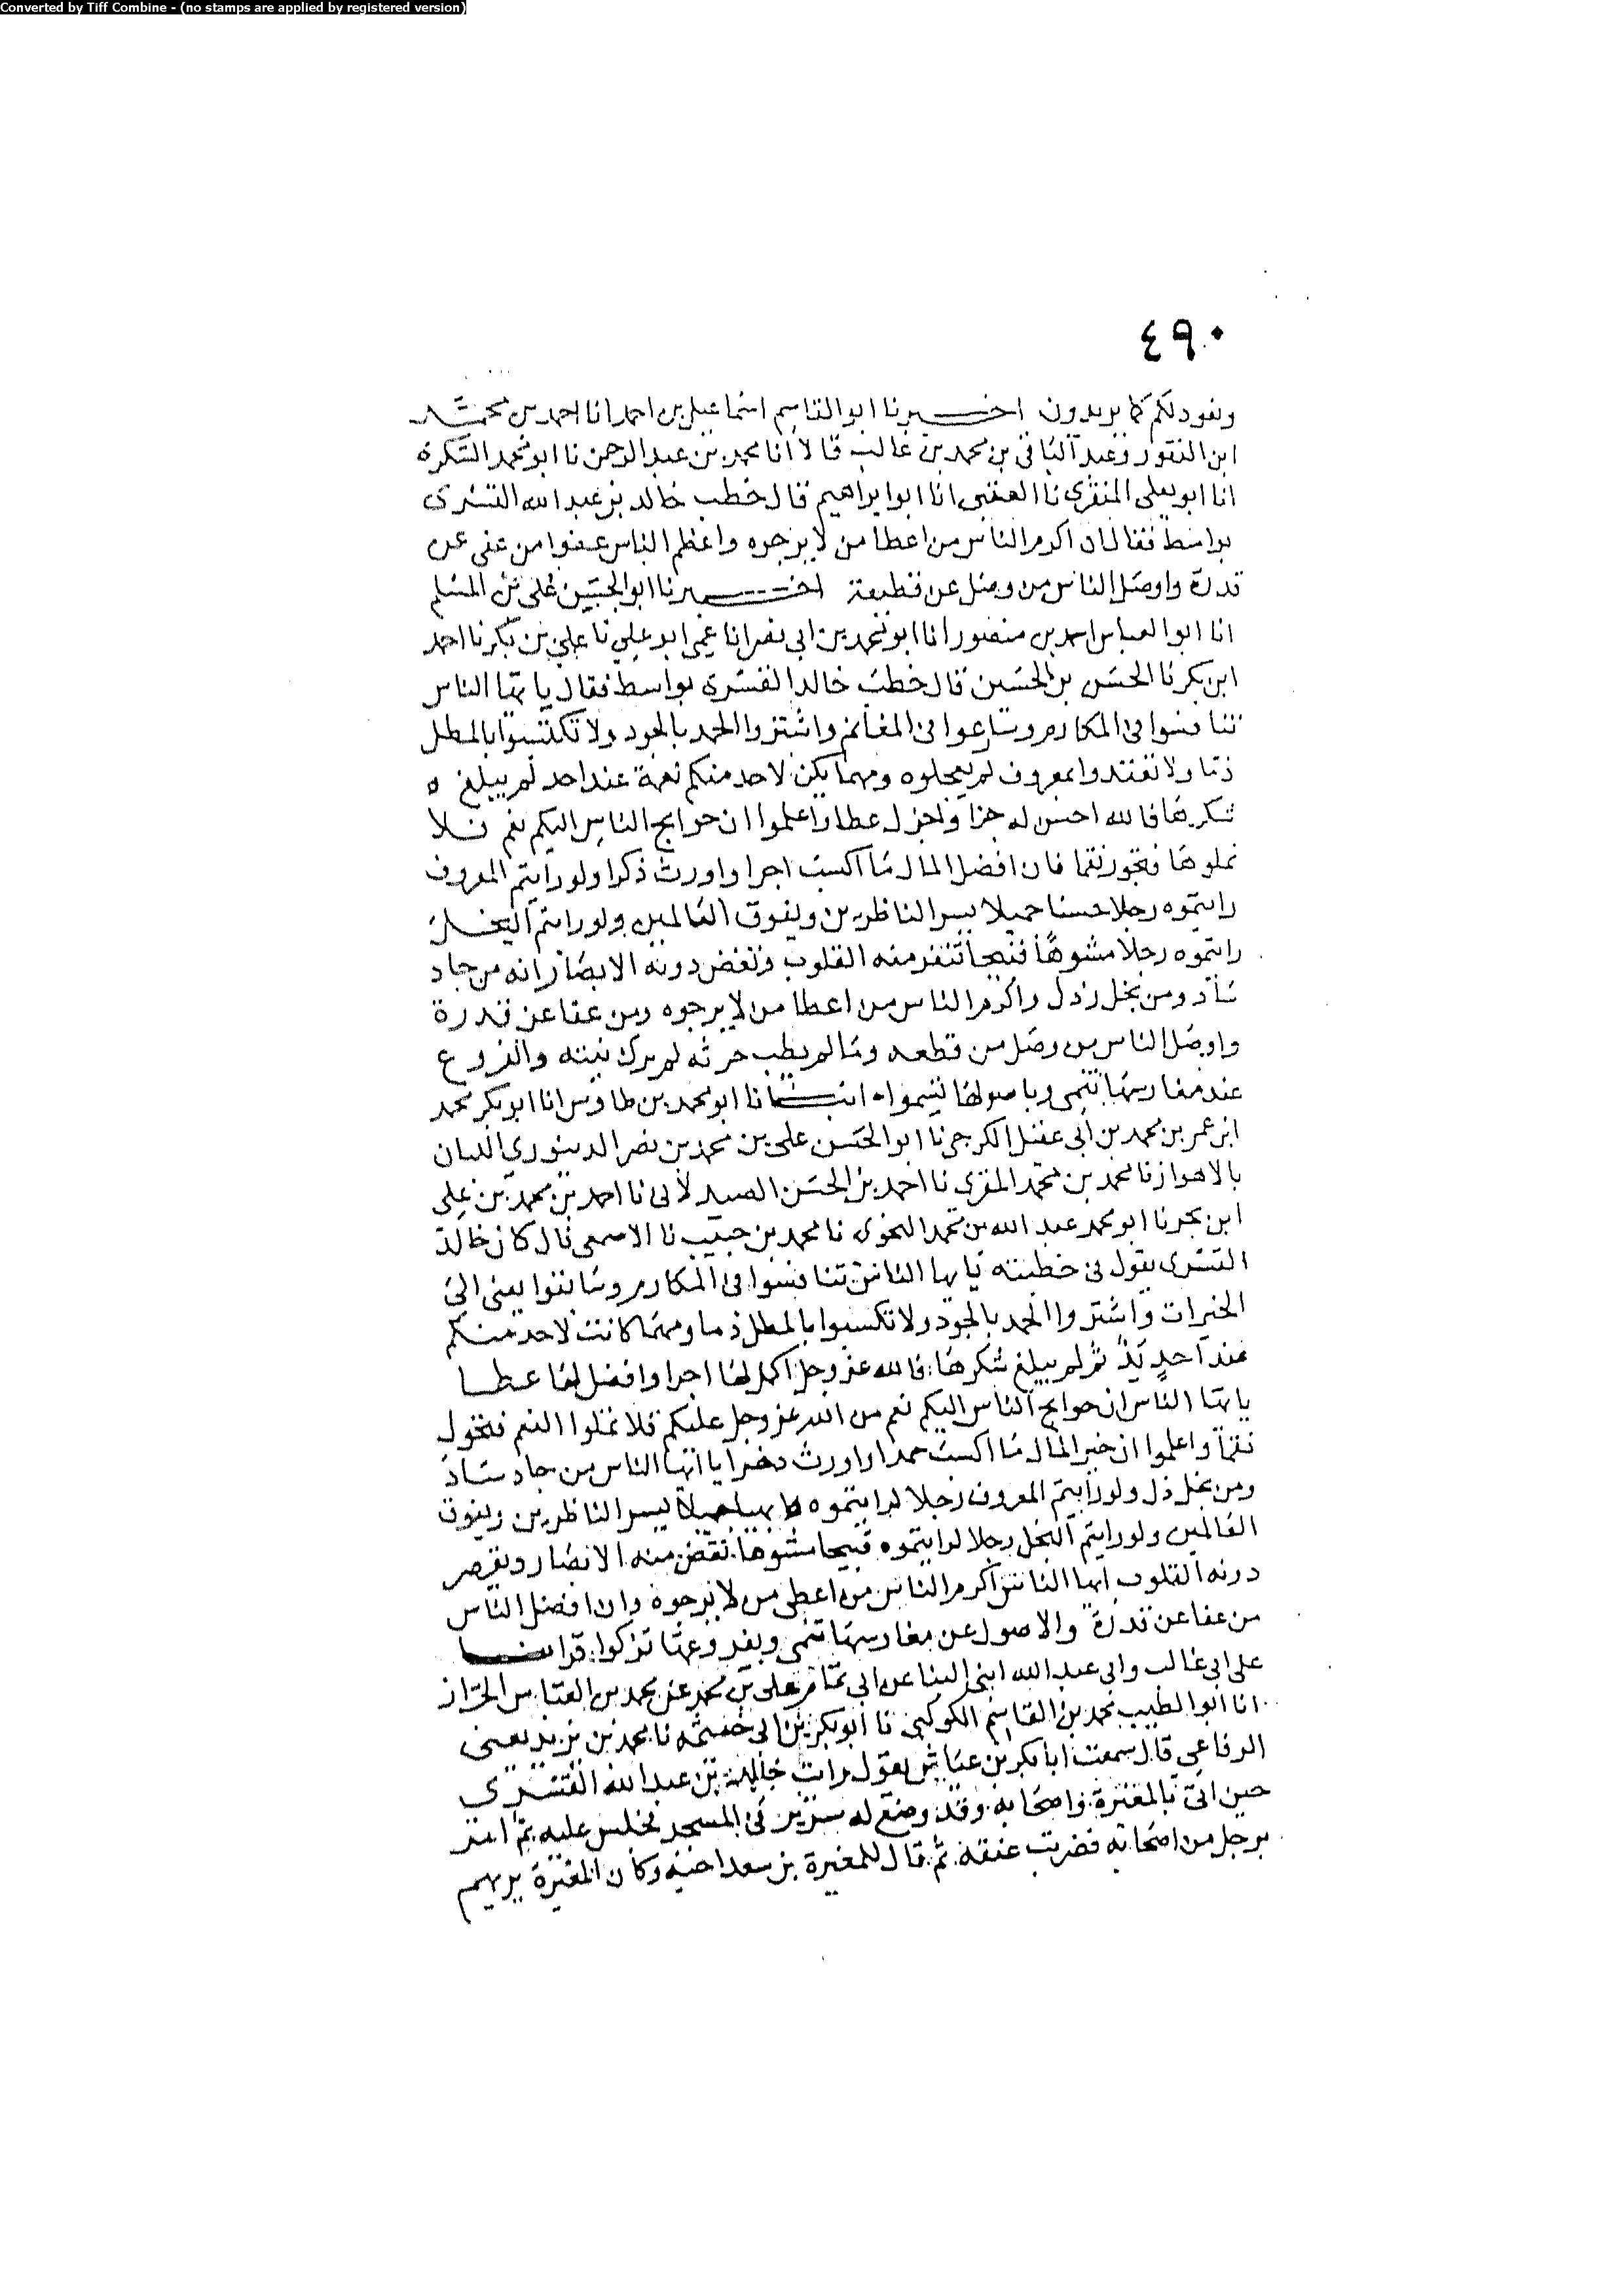 Converted by Tiff Combine - (no stamps are applied by registered version)
٤٩٠
ونعود لكم كما تريدون اخبرنا ابو القاسم اسماعيل بن احمد انا احمد بن محمد
ابن النقور وعبد الباقي بن محمد بن غالب قالا انا محمد بن عبد الرحمن نا ابو محمد السكرى
انا ابو يعلى المنقري نا العتبي انا ابو ابراهيم قال خطب خالد بن عبد الله القسرى
بواسط فقال ان اكرم الناس من اعطا من لا يرجوه واعظم الناس عفوا من عفى عن
قدرة واوصل الناس من وصل عن قطيعة اخبرنا ابو الحسين علي بن المسلم
انا ابو العباس احمد بن منصور انا ابو محمد بن ابي نصر انا عمى ابو علي نا علي بن بكر نا احمد
ابن بكر نا الحسن بن الحسين قال خطب خالد القسرى بواسط فقال يا يها الناس
تنافسوا في المكارم وسارعوا في المغانم واشتروا الحمد بالجود ولا تكتسبوا بالمطل
ذما ولا تعتدوا بمعروف لم تعجلوه ومهما يكن لاحد منكم نعمة عند احد لم يبلغ ه
شكرها فالله احسن له جزا واجزل عطا واعلموا ان حوايج الناس اليكم نعم فلا
تملوها فتحور نقما فان افضل المال ما اكسب اجرا واورث ذكرا ولو رايتم المعروف
رايتموه رجلا حسنا جميلا يسر الناظرين ويفوق العالمين ولو رايتم البخل
رايتموه رجلا مشوها قبيحا تنفر منه القلوب وتغض دونه الابصار انه من جاد
ساد ومن بخل رذل واكرم الناس من اعطا من لا يرجوه ومن عفا عن قدرة
واوصل الناس من وصل من قطعه وما لم يطب حرثه لم يزك نبته والفروع
عند مغارسها تنمى وباصولها تسموا ه انبانا ابو محمد بن طاوس انا ابو بكر محمد
ابن عمر بن محمد بن ابي عقيل الكرجي نا ابو الحسن علي بن محمد بن نصر الدينوري اللبان
بالاهواز نا محمد بن محمد المقري نا احمد بن الحسن الصيدلانى نا احمد بن محمد بن علي
ابن بحر نا ابو محمد عبد الله بن محمد النحوى نا محمد بن حبيب نا الاصمعي قال كان خالد
القسرى يقول في خطبته يا يها الناس تنافسوا في المكارم وسابقوا يعني الى
الخيرات واشتروا الحمد بالجود ولا تكسبوا بالمطل ذما ومهما كانت لاحد منكم
عند احدٍ يدٌ ثم لم يبلغ شكرها فالله عز وجل اكمل لها اجرا وافضل لها عطا
يا يها الناس ان حوايج الناس اليكم نعم من الله عز وجل عليكم فلا تملوا النعم فتحول
نقماً واعلموا ان خير المال ما اكسب حمدا واورث ذخرا يا ايها الناس من جاد ساد
ومن بخل ذل ولو رايتم المعروف رجلا لرايتموه بهيا جميلا يسر الناظرين ويفوق
العالمين ولو رايتم البخل رجلا لرايتموه قبيحا مشوها تغض منه الابصار ويقصر
دونه القلوب ايها الناس اكرم الناس من اعطى من لا يرجوه وان افضل الناس
من عفا عن قدرة والاصول عن مغارسها تنمى وبفروعها تزكوا قرات
على ابي غالب وابي عبد الله ابنى البنا عن ابي تمام علي بن محمد عن محمد بن العباس الخزاز
انا ابو الطيب محمد بن القاسم الكوكبي نا ابو بكر بن ابي خيثمه نا محمد بن يزيد يعنى
الرفاعي قال سمعت ابا بكر بن عياش يقول رايت خالد بن عبد الله القسرى
حين اتى بالمغيرة واصحابه وقد وضع له سرير في المسجد فجلس عليه ثم امر
برجل من اصحابه فضربت عنقه ثم قال للمغيرة بن سعد احيه وكان المغيرة يريهم